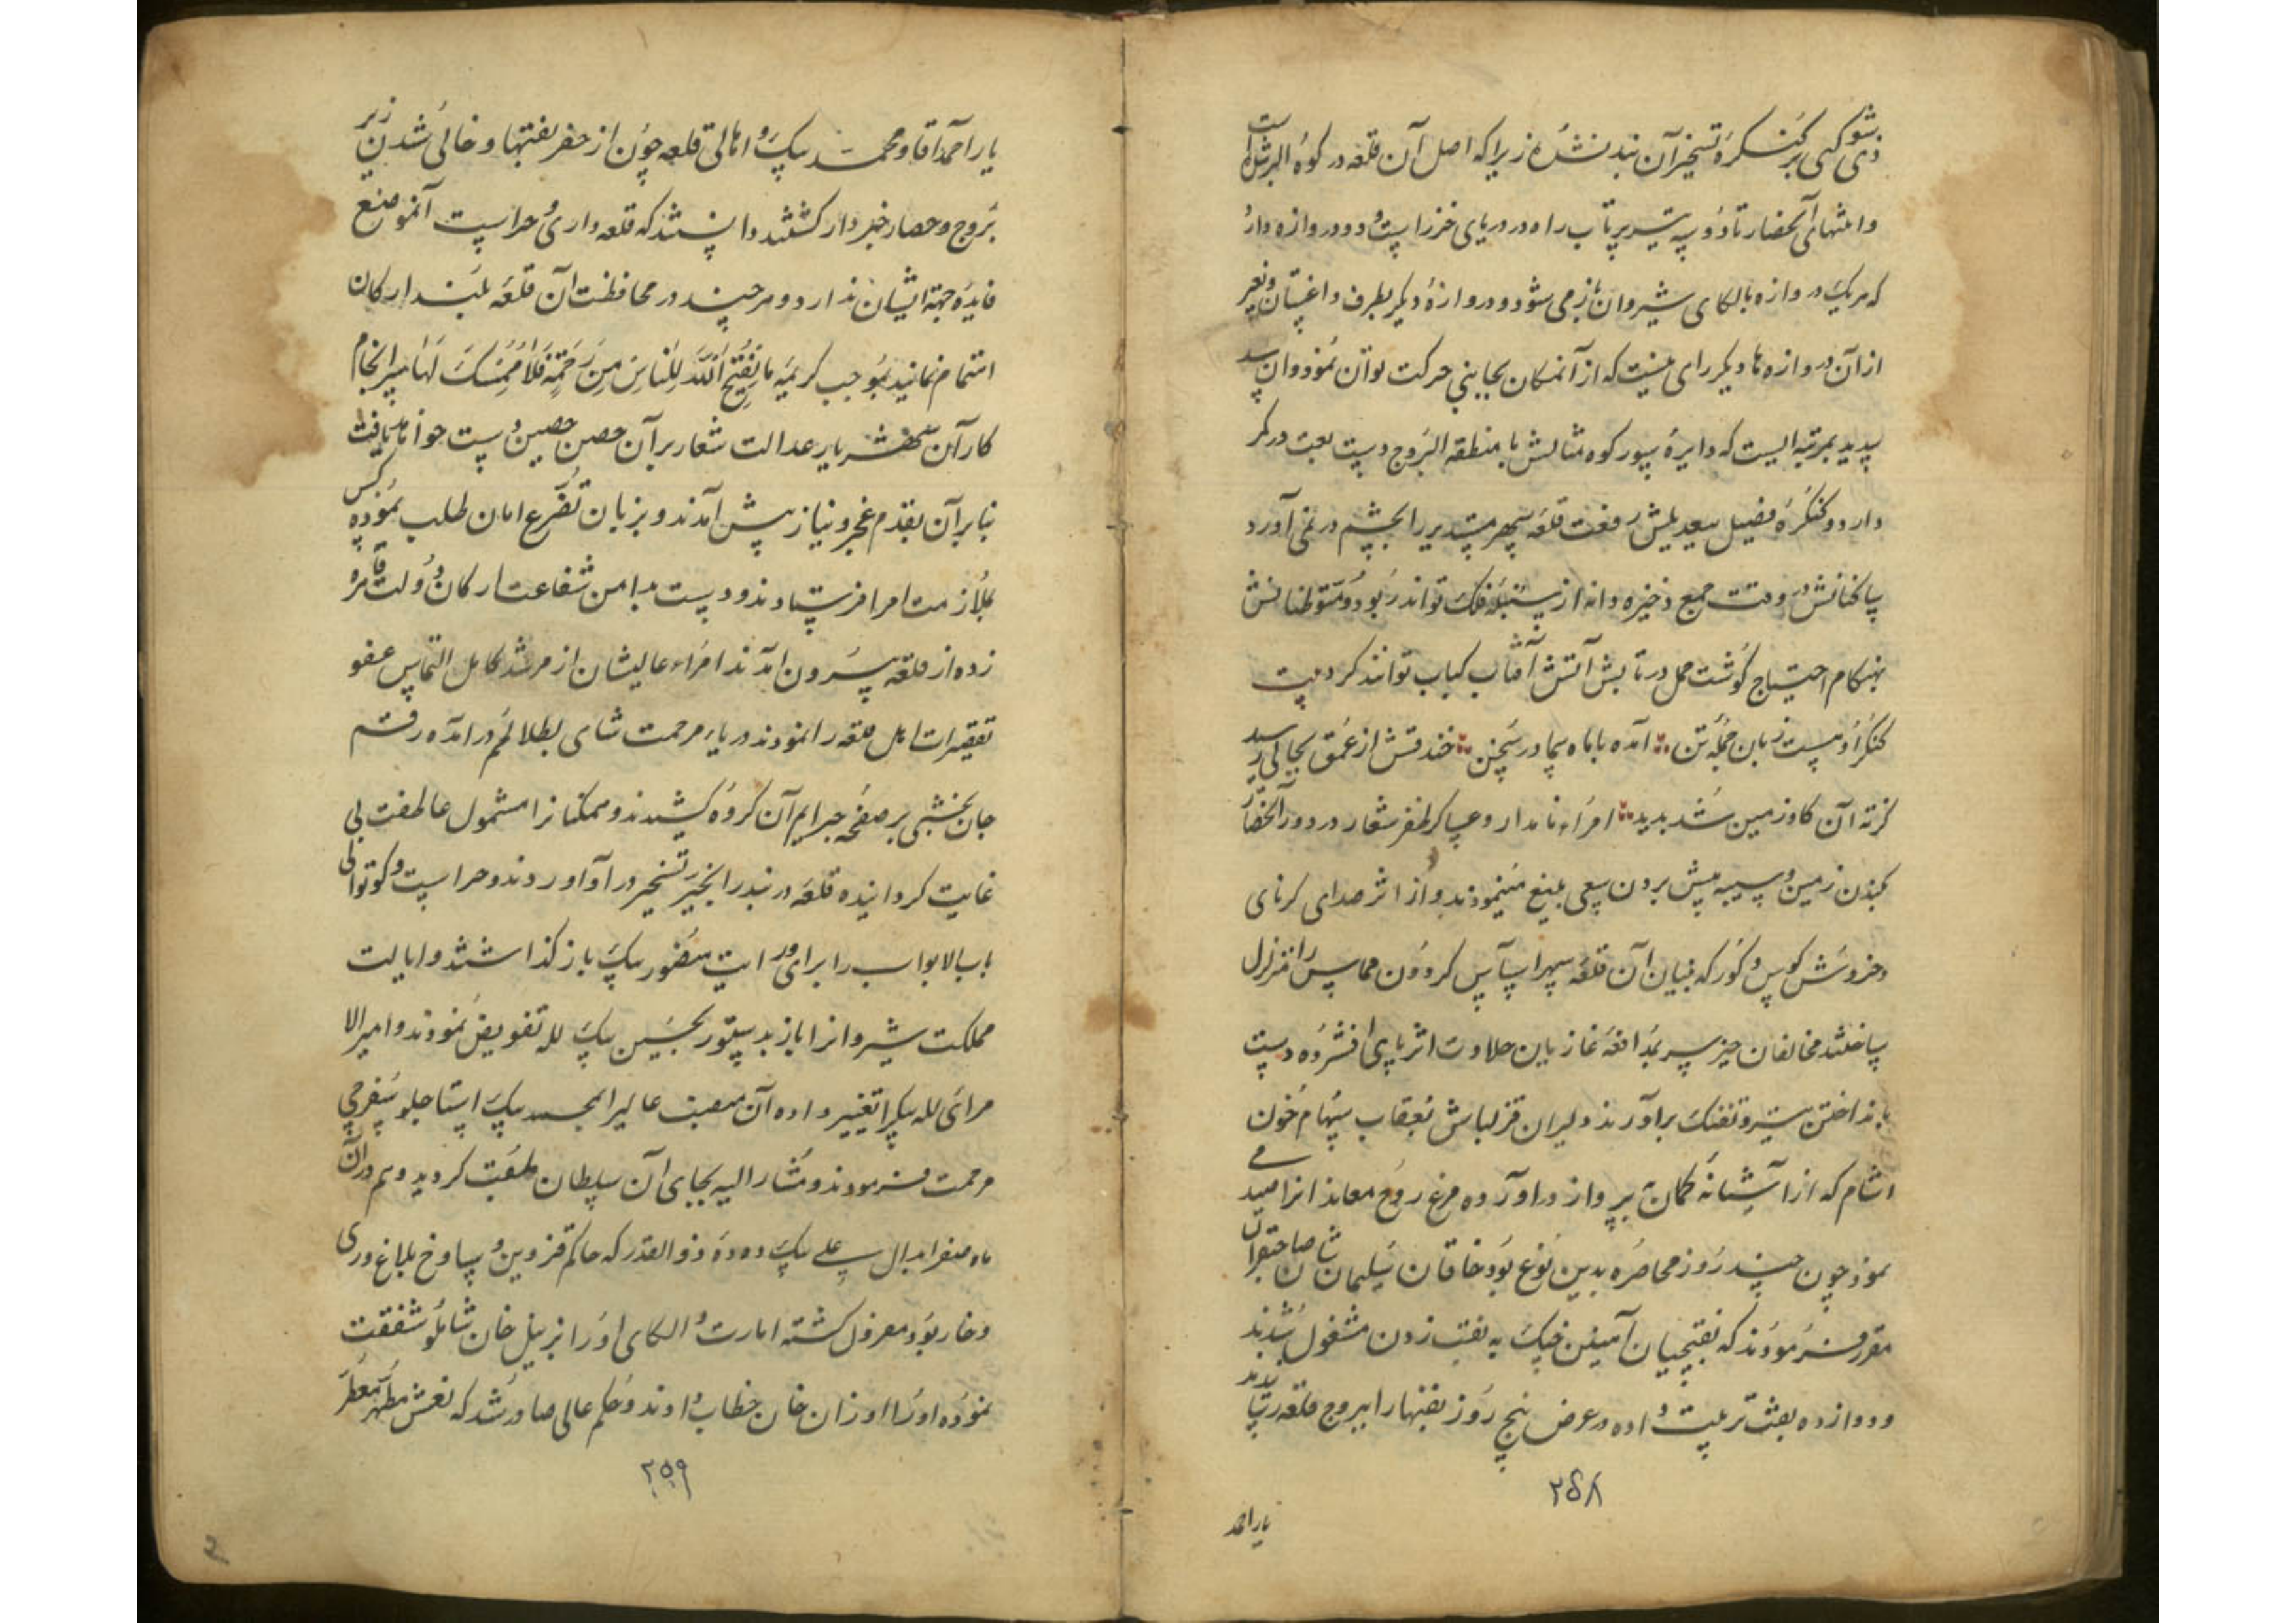 ذی شوکتی بر کنگره تسخیر آن بند نشده زیرا که اصل آن قلعه در کوه البرز است
وانتهای آنحصار تا دو سه تیر پرتاب راه در دریای خزر است و دو دروازه دارد
که هر یک دروازه بالکای شیروان باز می شود و دروازه دیگر بطرف داغستان و بغیر
از آن دروازه ها دیگر راهی نیست که از آنمکان بجایی حرکت توان نمود و آن سد
سدید بمرتبه ایست که دایره سور کوه مثالش با منطقه البروج دست بعیت در کمر
دارد و کنگره فصیل بیعدیلش رفعت قلعه سپهر مستدیر را بچشم در نمی آورد
ساکنانش در وقت جمع ذخیره دانه از سنبله فلک تواند ربود و متوطنانش
بهنگام احتیاج گوشت حمل در تابش آتش آفتاب کباب توانند کرد بیت
کنگر او بیست زبان جمله تن آمده با ماه سما در سخن خندقش از عمق بجایی رسید
کز ته آن گاو زمین شد پدید امراء نامدار و عساکر ظفر شعار در دور آنحصار
بکندن زمین و سیبه پیش بردن سعی بلیغ مینمودند و از اثر صدای کرنای
و خروش کوس و کورکه بنیان آن قلعه سپهر اساس گردون مماس را متزلزل
ساختند مخالفان خیره سر بمدافعه غازیان جلادت اثر پای افشرده دست
بانداختن تیر و تفنک برآوردند دلیران قزلباش بعقاب سهام خون
آشام که از آشیانه کمان بپرواز درآورده مرغ روح معاندانرا صید می
نمود چون چند روز محاصره بدین نوع بود خاقان سلیمان شان صاحبقران
مقرر فرمودند که نقبچیان آهنین چنگ به نقب زدن مشغول شدند
و دوازده نقب ترتیب داده در عرض پنج روز نقبها را ببروج قلعه رسانیدند
۲۵۸
یار احمد
یار احمد آقا و محمد بیک و اهالی قلعه چون از حفر نقبها و خالی شدن زیر
بروج و حصار خبردار کشتند دانستند که قلعه داری و حراست آنموضع
فایده جهة ایشان ندارد و هر چند در محافظت آن قلعه بلند ارکان
اهتمام نمایند بموجب کریمه ما یفتح الله للناس من رحمة فلا ممسک لها سرانجام
کار آن شهریار عدالت شعار بر آن حصن حصین دست خواهد یافت
بنابر آن بقدم عجز و نیاز پیش آمدند و بزبان تضرع امان طلب نموده کس
بملازمت امرا فرستادند و دست بدامن شفاعت ارکان دولت قاهره
زده از قلعه بیرون آمدند امراء عالیشان از مرشد کامل التماس عفو
تقصیرات اهل قلعه را نمودند دریاء مرحمت شاهی بطلاطم درآمده رقم
جان بخشی بر صفحه جرایم آن کروه کشیدند و همکنانرا مشمول عاطفت بی
غایت کردانیده قلعه دربند را بخیر تسخیر درآوردند و حراست و کوتوالی
باب الابواب را برای و رایت منصور بیک باز گذاشتند و ایالت
مملکت شیروانرا باز بدستور بحسین بیک لله تفویض نمودند و امیرالا
مرائی لله بیکرا تغییر داده آن منصب عالیرا بمحمد بیک استاجلو سفره چی
مرحمت فرمودند و مشارالیه بجایی آن سلطان ملقب کردید و هم در آن
ماه صفر ابدال علی بیک دده ذوالقدر که حاکم قزوین و ساوخ بلاغ و ری
و خار بود معزول کشته امارت و الکای او را بزینل خان شاملو شفقت
نموده او را از آن خان خطاب دادند و حکم عالی صادر شد که نعش مطهر معطر
۲۵۹